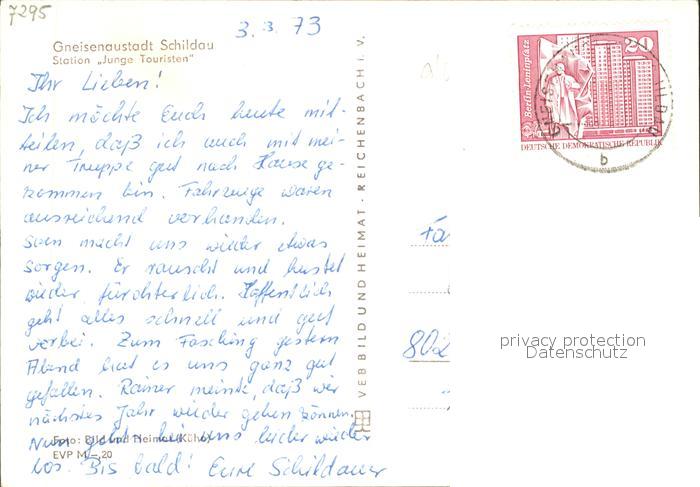 7295
3.3.73
Gneisenaustadt Schildau
Station „Junge Touristen"
Ihr Lieben!
Ich möchte Euch heute mit-
teilen, daß ich auch mit mei-
ner Truppe gut nach Hause ge-
kommen bin. Fahrzeuge waren
ausreichend vorhanden.
Sven macht uns wieder etwas
Sorgen. Er rauscht und hustet
wieder fürchterlich. Hoffentlich
geht alles schnell und gut
vorbei. Zum Fasching gestern
Abend hat es uns ganz gut
gefallen. Rainer meinte, daß wir
nächstes Jahr wieder gehen können.
Nun geht bei uns leider wieder
los. Bis bald! Eure Schildauer
Foto: Bild und Heimat (Kühn)
EVP M –,20
VEB BILD UND HEIMAT · REICHENBACH i. V.
Berlin-Leninplatz
20
DEUTSCHE DEMOKRATISCHE REPUBLIK
b
Fa
802
privacy protection
Datenschutz